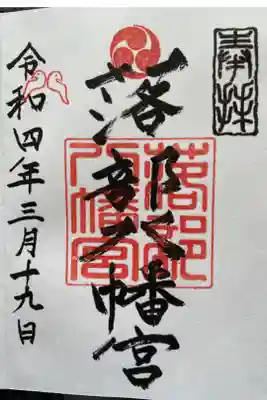 奉拝
落部八幡宮
落部
八幡宮
令和四年三月十九日